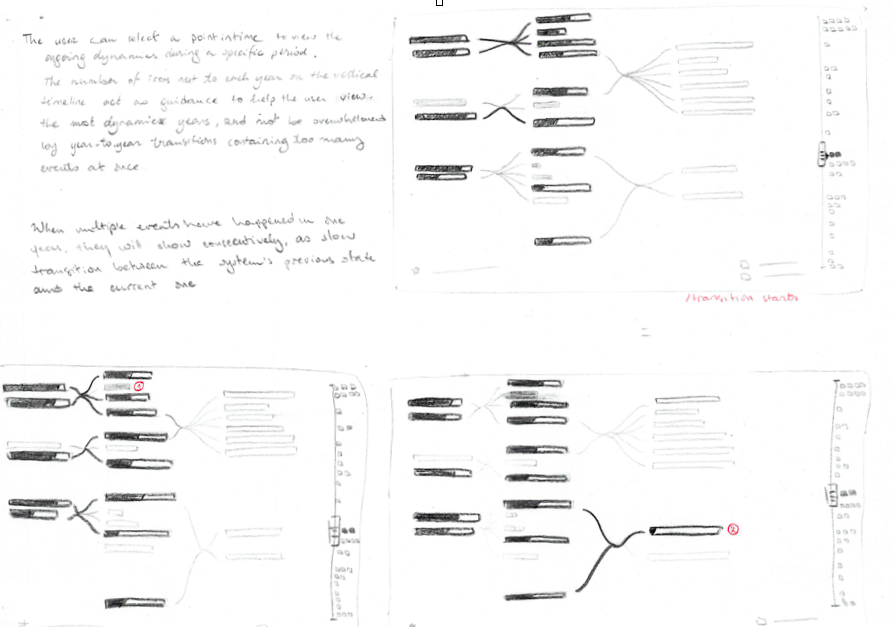 The user can select a point in time to view the
ongoing dynamics during a specific period.
The number of icons next to each year on the vertical
timeline act as guidance to help the user view
the most dynamics years, and not be overwhelmed
by year-to-year transitions containing too many
events at once
When multiple events have happened in one
year, they will show consecutively, as slow
transition between the system's previous state
and the current one
transition starts
1
2